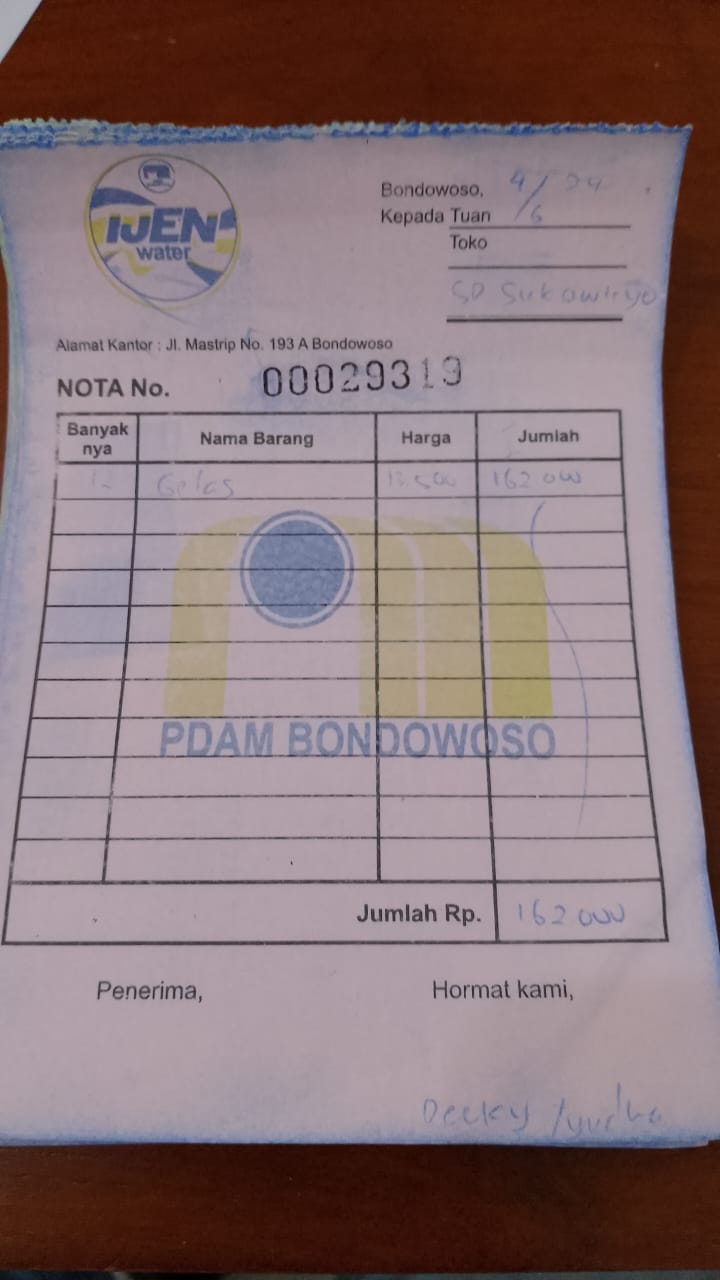 IJEN
water
Bondowoso, 4/6 24
Kepada Tuan
Toko
SD Sukowiryo
Alamat Kantor : Jl. Mastrip No. 193 A Bondowoso
NOTA No. 00029319
Banyak nya Nama Barang Harga Jumlah
12 Gelas 13.500 162 000
PDAM BONDOWOSO
Jumlah Rp. 162 000
Penerima, Hormat kami,
Decky